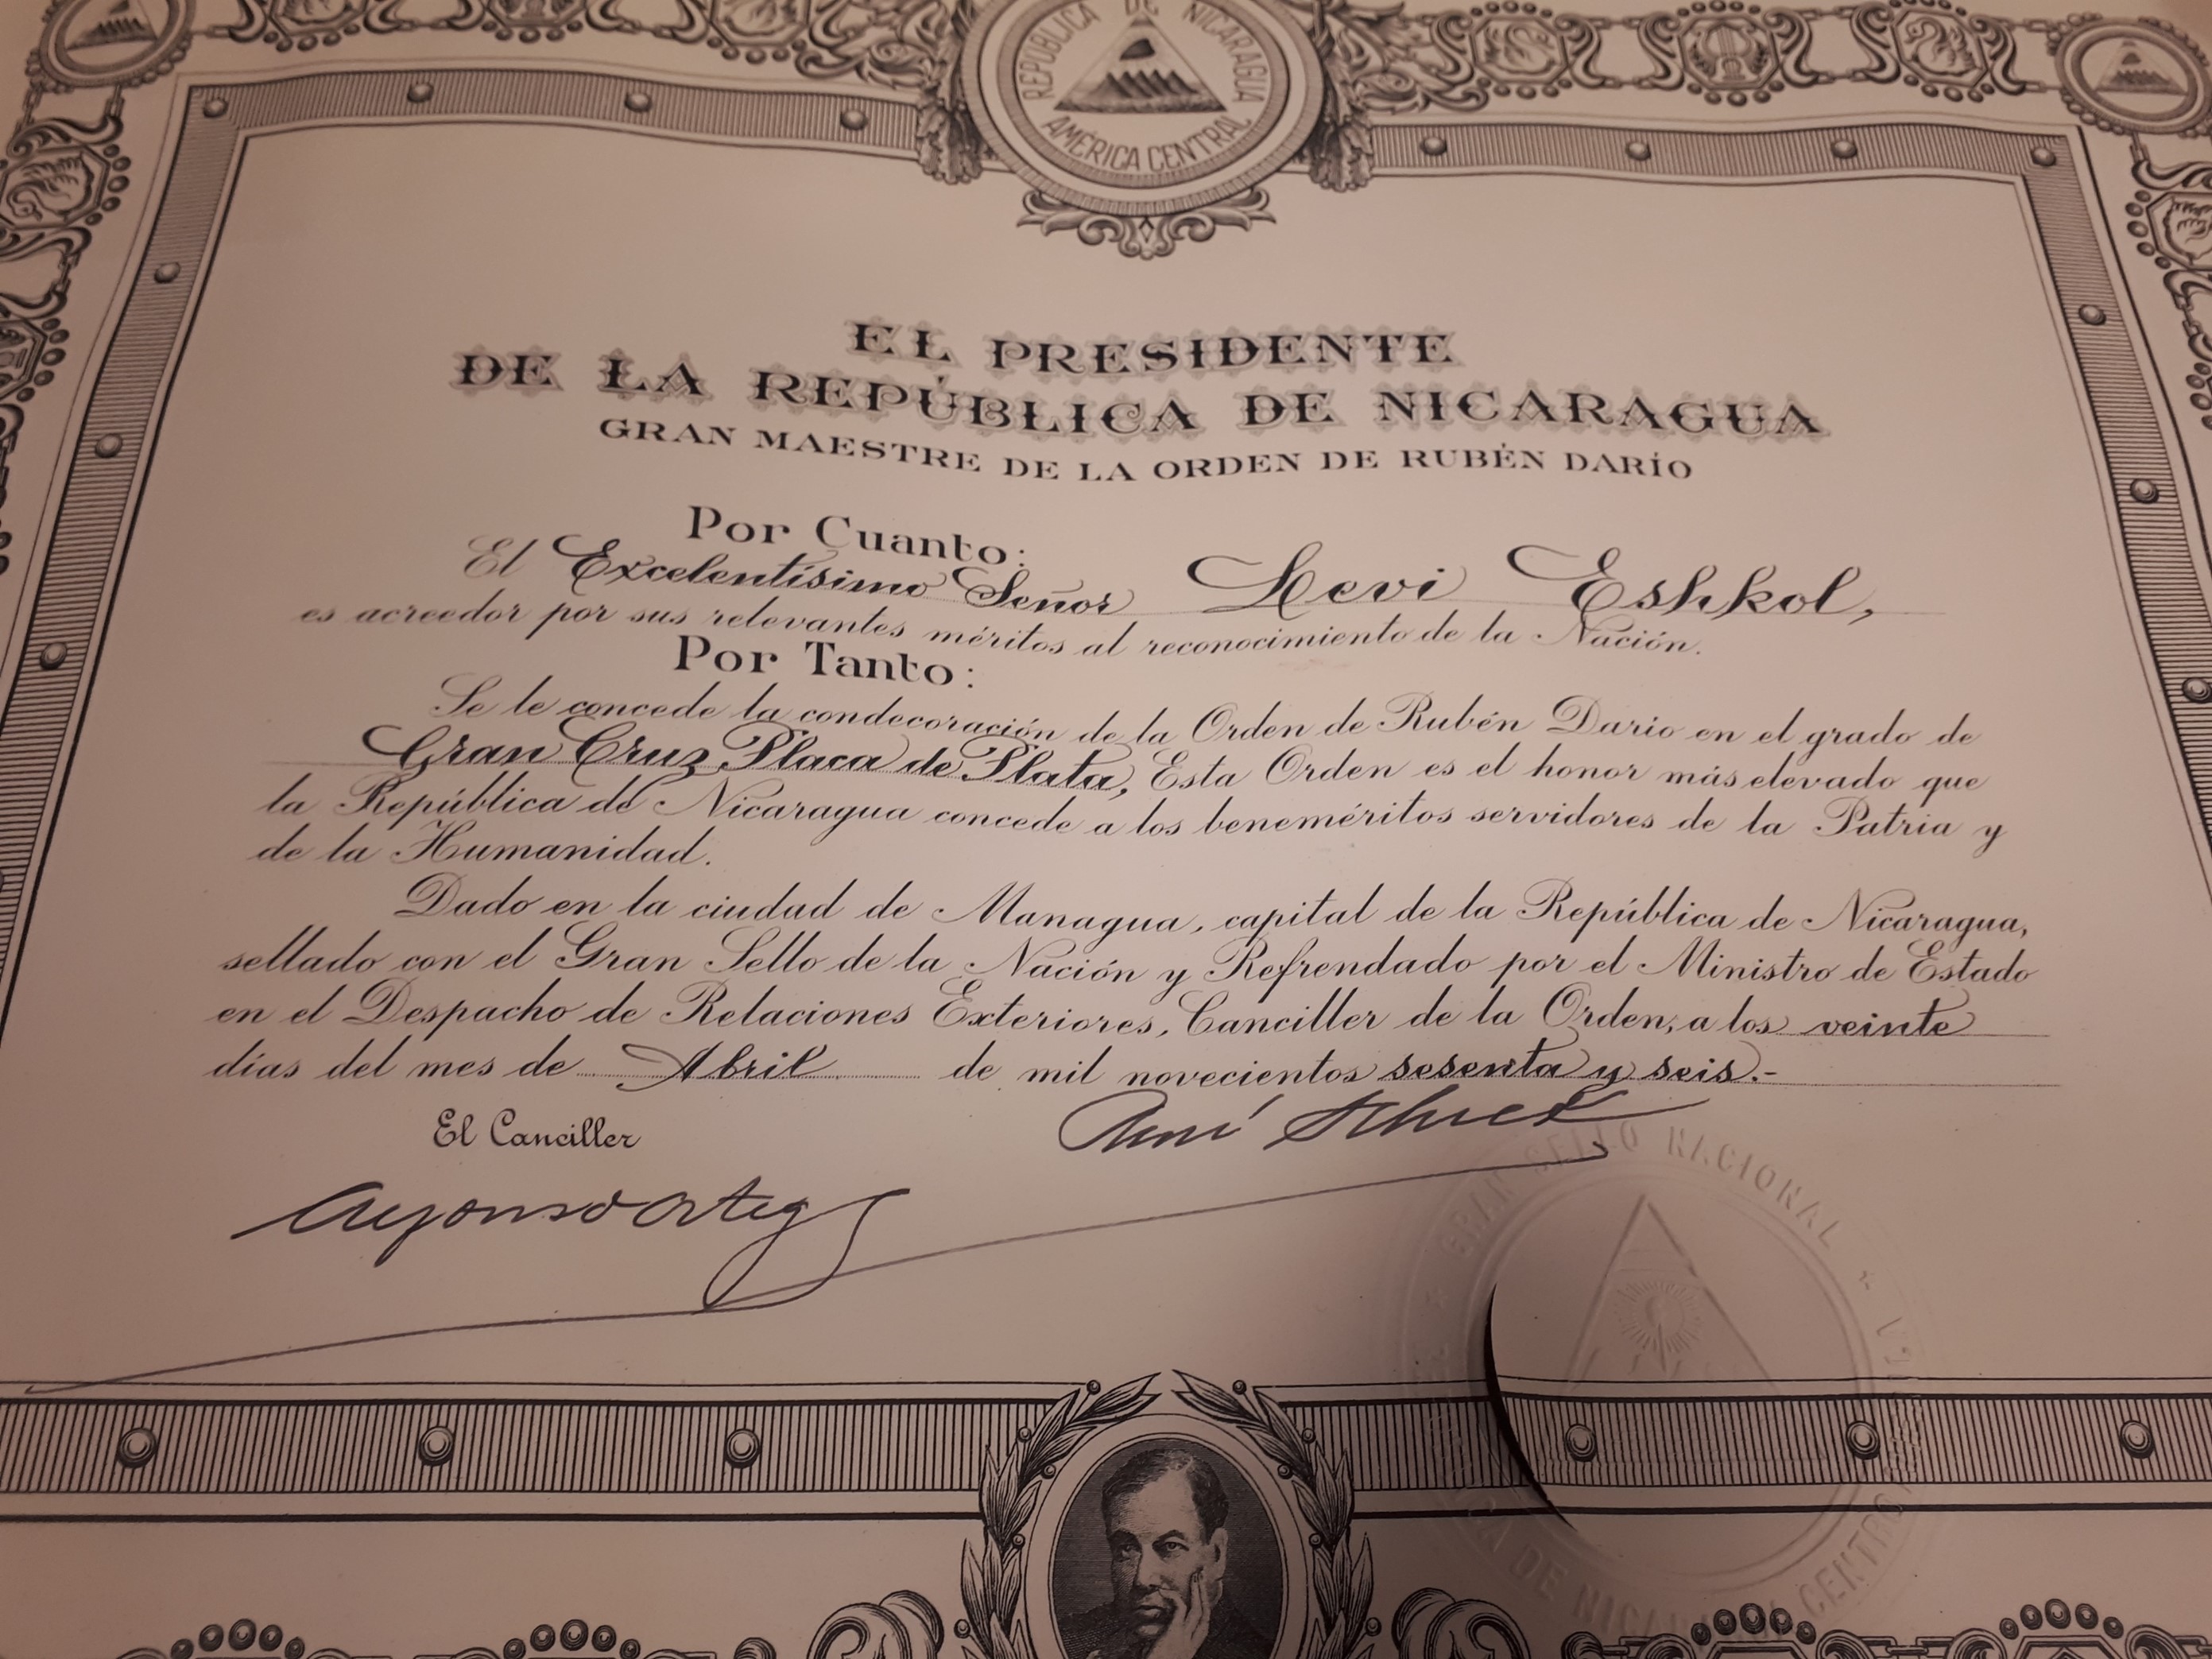 REPUBLICA DE NICARAGUA
AMÉRICA CENTRAL
EL PRESIDENTE
DE LA REPÚBLICA DE NICARAGUA
GRAN MAESTRE DE LA ORDEN DE RUBÉN DARÍO
Por Cuanto:
El Excelentísimo Señor Levi Eshkol,
es acreedor por sus relevantes méritos al reconocimiento de la Nación.
Por Tanto:
Se le concede la condecoración de la Orden de Rubén Darío en el grado de
Gran Cruz Placa de Plata, Esta Orden es el honor más elevado que
la República de Nicaragua concede a los beneméritos servidores de la Patria y
de la Humanidad.
Dado en la ciudad de Managua, capital de la República de Nicaragua,
sellado con el Gran Sello de la Nación y Refrendado por el Ministro de Estado
en el Despacho de Relaciones Exteriores, Canciller de la Orden, a los veinte
días del mes de Abril de mil novecientos sesenta y seis.-
René Schick
El Canciller
Alfonso Ortega
GRAN SELLO NACIONAL
DE NICARAGUA CENTRO